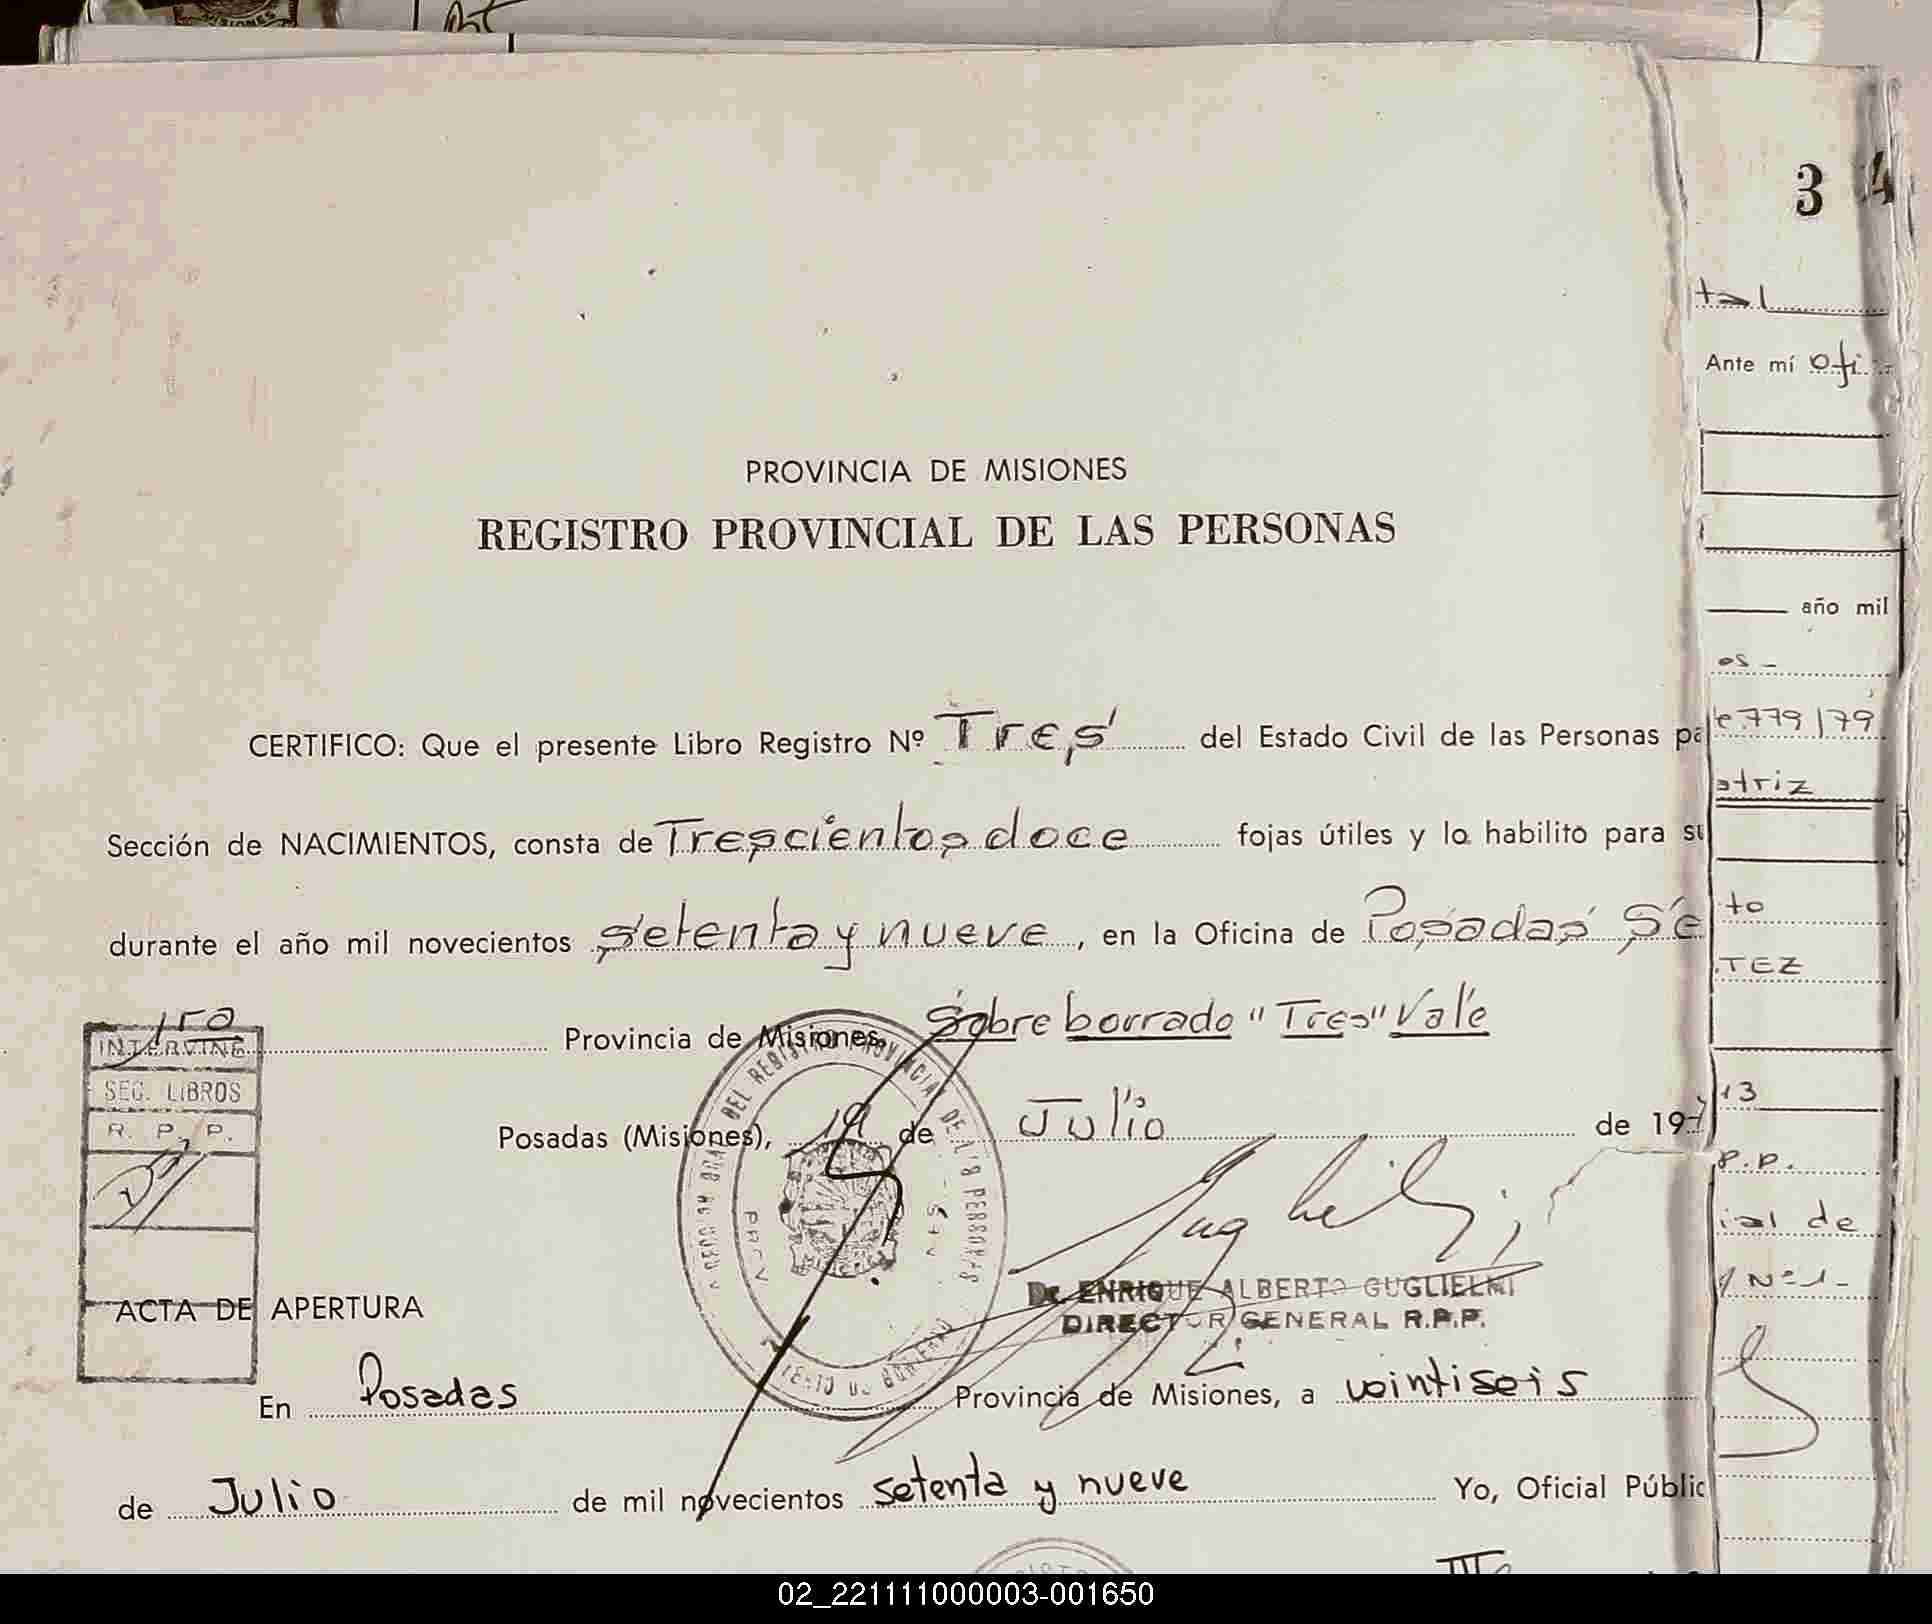 MISIONES
3 4
tal
Ante mí Ofi
PROVINCIA DE MISIONES
REGISTRO PROVINCIAL DE LAS PERSONAS
año mil
os -
CERTIFICO: Que el presente Libro Registro Nº Tres del Estado Civil de las Personas pa
e 779/79
atriz
Sección de NACIMIENTOS, consta de Trescientos doce fojas útiles y lo habilito para su
to
durante el año mil novecientos setenta y nueve, en la Oficina de Posadas Se
TEZ
1ra Provincia de Misiones. Sobre borrado "Tres" Vale
INTERVINE
SEC. LIBROS
R. P. P.
13
Posadas (Misiones), 19 de Julio de 197
P.P.
ial de
Nº 1-
DEL REGISTRO PROVINCIAL DE LAS PERSONAS
Dr. ENRIQUE ALBERTO GUGLIELMI
DIRECTOR GENERAL R.P.P.
ACTA DE APERTURA
En Posadas Provincia de Misiones, a veintiseis
de Julio de mil novecientos setenta y nueve Yo, Oficial Públic
02_221111000003-001650